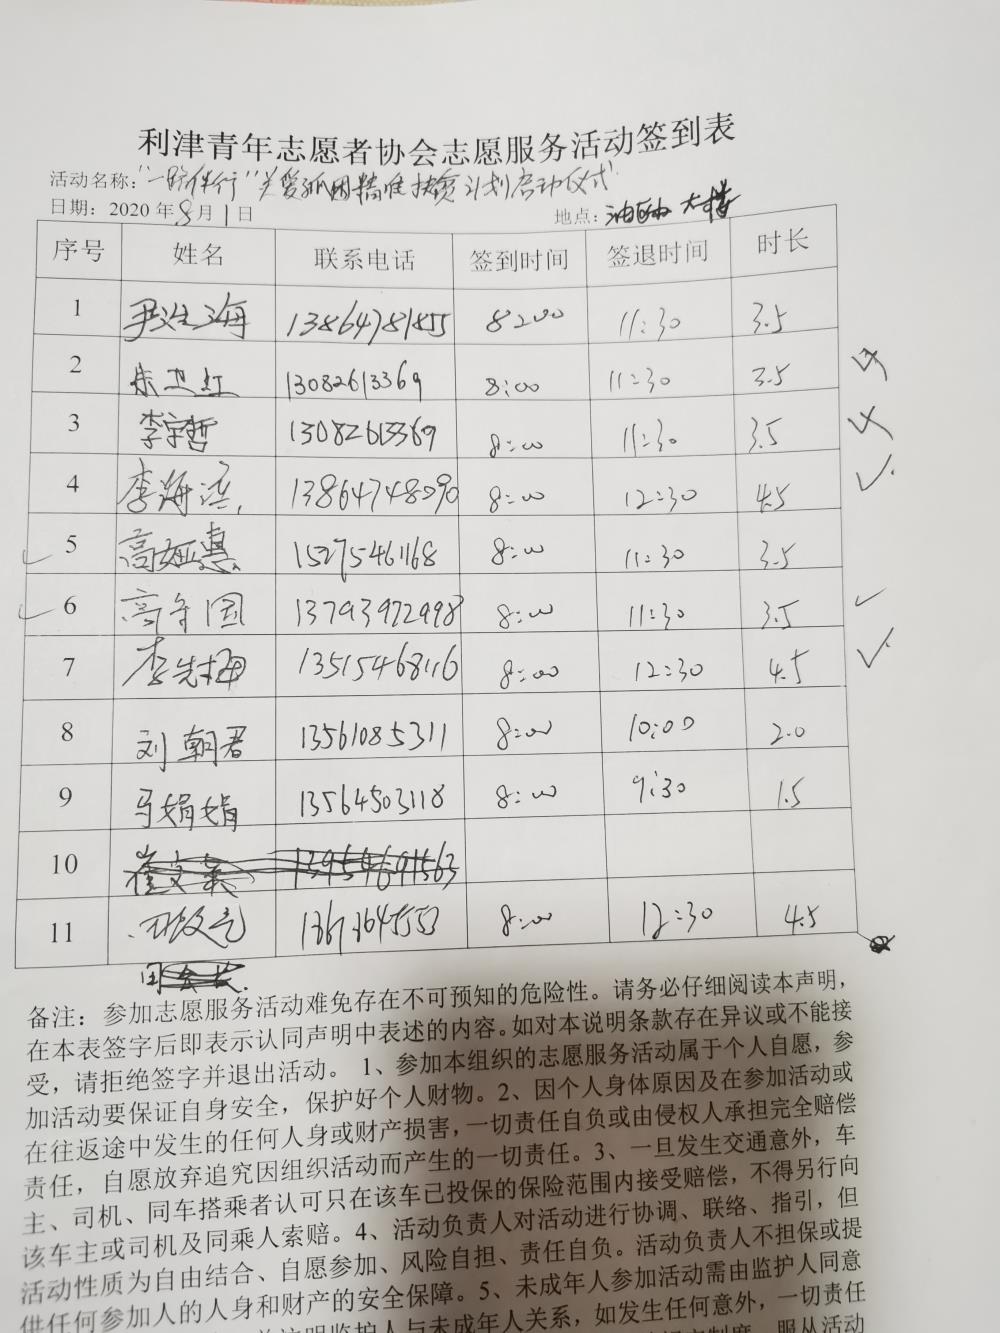 利津青年志愿者协会志愿服务活动签到表
活动名称:"一路伴行"关爱孤困精准扶贫计划启动仪式
日期: 2020年8月1日 地点: 大楼
序号 姓名 联系电话 签到时间 签退时间 时长
1 尹海 13864781855 8:00 11:30 3.5
2 朱卫红 13082613369 8:00 11:30 3.5
3 李宇哲 13082613369 8:00 11:30 3.5
4 李海滨 13864748090 8:00 12:30 4.5
5 高娅惠 15275461168 8:00 11:30 3.5
6 高守国 13793972998 8:00 11:30 3.5
7 李先梅 13515468116 8:00 12:30 4.5
8 刘朝君 13561085311 8:00 10:00 2.0
9 马娟娟 13564503118 8:00 9:30 1.5
10 崔文英 13954691563
11 8:00 12:30 4.5
备注:参加志愿服务活动难免存在不可预知的危险性。请务必仔细阅读本声明,
在本表签字后即表示认同声明中表述的内容。如对本说明条款存在异议或不能接
受,请拒绝签字并退出活动。 1、参加本组织的志愿服务活动属于个人自愿,参
加活动要保证自身安全,保护好个人财物。2、因个人身体原因及在参加活动或
在往返途中发生的任何人身或财产损害,一切责任自负或由侵权人承担完全赔偿
责任,自愿放弃追究因组织活动而产生的一切责任。3、一旦发生交通意外,车
主、司机、同车搭乘者认可只在该车已投保的保险范围内接受赔偿,不得另行向
该车主或司机及同乘人索赔。4、活动负责人对活动进行协调、联络、指引,但
活动性质为自由结合、自愿参加、风险自担、责任自负。活动负责人不担保或提
供任何参加人的人身和财产的安全保障。5、未成年人参加活动需由监护人同意
监护人与未成年人关系,如发生任何意外,一切责任
制度,服从活动